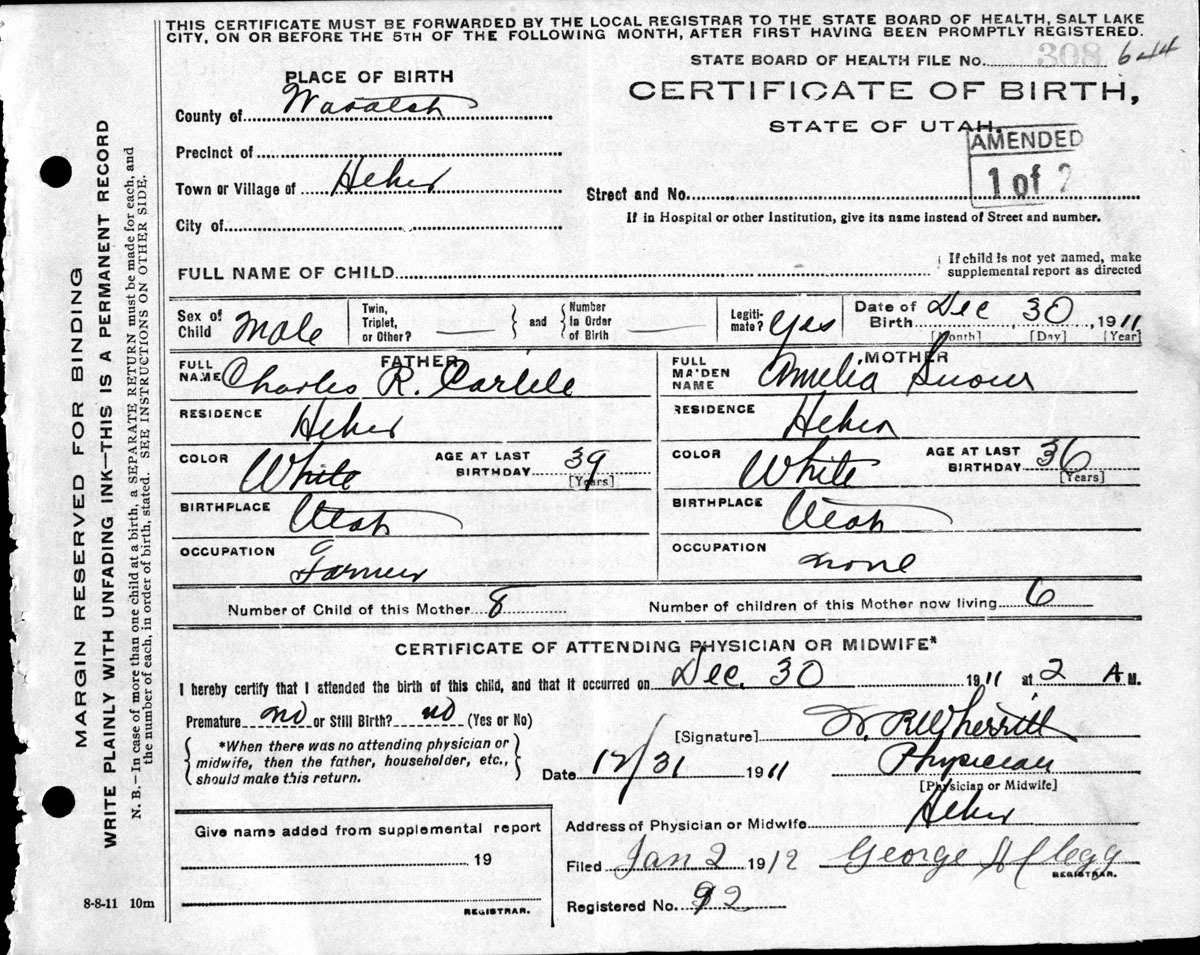 THIS CERTIFICATE MUST BE FORWARDED BY THE LOCAL REGISTRAR TO THE STATE BOARD OF HEALTH, SALT LAKE
CITY, ON OR BEFORE THE 5TH OF THE FOLLOWING MONTH, AFTER FIRST HAVING BEEN PROMPTLY REGISTERED.
STATE BOARD OF HEALTH FILE No. 308 644
PLACE OF BIRTH
CERTIFICATE OF BIRTH,
County of Wasatch
STATE OF UTAH.
AMENDED
1 of 2
Precinct of
Town or Village of Heber
Street and No.
If in Hospital or other Institution, give its name instead of Street and number.
City of
FULL NAME OF CHILD
If child is not yet named, make
supplemental report as directed
Sex of Child Male Twin, Triplet, or Other? and Number In Order of Birth Legiti-mate? Yes Date of Birth Dec 30, 1911
[Month] [Day] [Year]
FATHER
FULL NAME Charles R. Carlile
RESIDENCE Heber
COLOR White AGE AT LAST BIRTHDAY 39
[Years]
BIRTHPLACE Utah
OCCUPATION Farmer
MOTHER
FULL MAIDEN NAME Amelia
RESIDENCE Heber
COLOR White AGE AT LAST BIRTHDAY 36
[Years]
BIRTHPLACE Utah
OCCUPATION none
Number of Child of this Mother 8 Number of children of this Mother now living 6
CERTIFICATE OF ATTENDING PHYSICIAN OR MIDWIFE*
I hereby certify that I attended the birth of this child, and that it occurred on Dec. 30 1911 at 2 A M.
Premature no or Still Birth? no (Yes or No)
*When there was no attending physician or
midwife, then the father, householder, etc.,
should make this return.
[Signature] W. R Wherritt
Date 12/31 1911 Physician
[Physician or Midwife]
Give name added from supplemental report
19
REGISTRAR.
Address of Physician or Midwife Heber
Filed Jan 2 1912 George A Clegg
REGISTRAR.
Registered No. 92
8-8-11 10m
MARGIN RESERVED FOR BINDING
WRITE PLAINLY WITH UNFADING INK—THIS IS A PERMANENT RECORD
N. B.—In case of more than one child at a birth, a SEPARATE RETURN must be made for each, and
the number of each, in order of birth, stated. SEE INSTRUCTIONS ON OTHER SIDE.